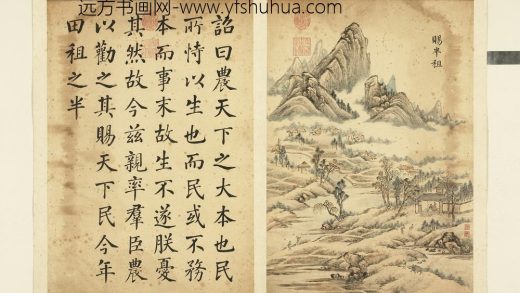 远方书画网-www.yfshuhua.com
賜半租
詔曰農天下之大本也民
所恃以生也而民或不務
本而事末故生不遂朕憂
其然故今兹親率羣臣農
以勸之其賜天下民今年
田租之半